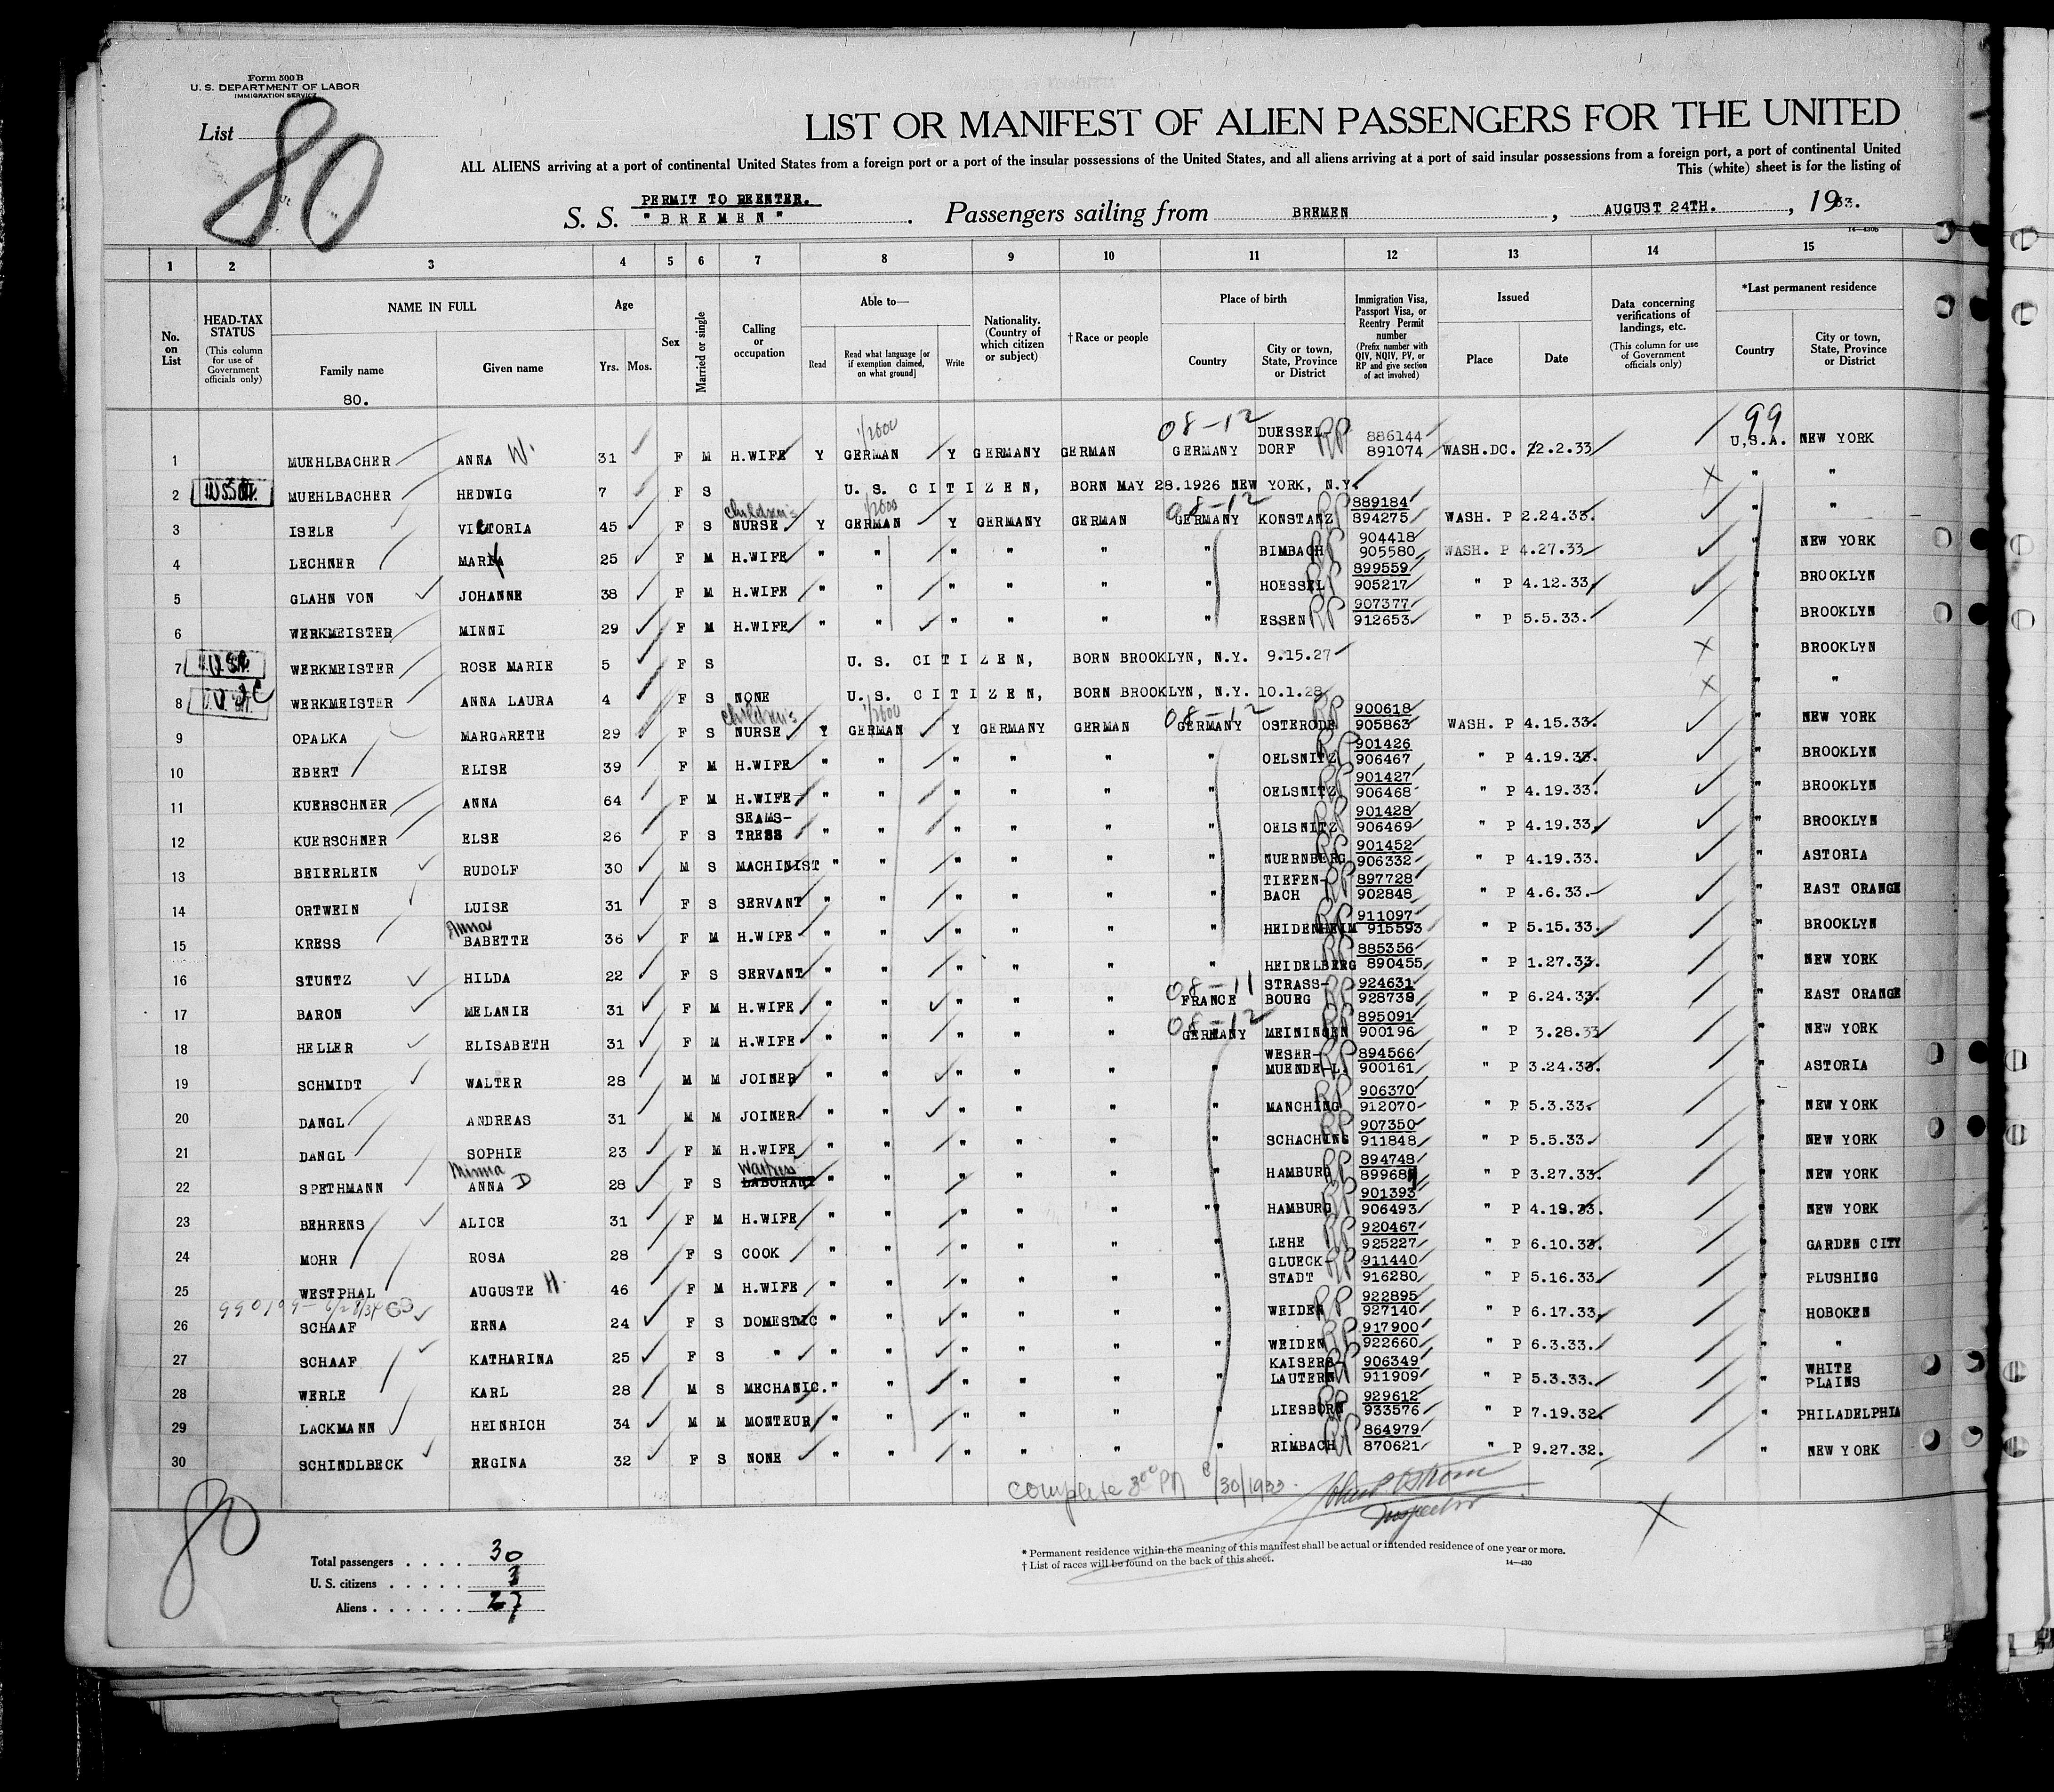 Form 500 B
U. S. DEPARTMENT OF LABOR
IMMIGRATION SERVICE
List 80
LIST OR MANIFEST OF ALIEN PASSENGERS FOR THE UNITED
ALL ALIENS arriving at a port of continental United States from a foreign port or a port of the insular possessions of the United States, and all aliens arriving at a port of said insular possessions from a foreign port, a port of continental United
This (white) sheet is for the listing of
PERMIT TO REENTER.
S. S. "BREMEN". Passengers sailing from BREMEN, AUGUST 24TH., 1933.
14—430B
1 2 3 4 5 6 7 8 9 10 11 12 13 14 15
No. on List
HEAD-TAX STATUS (This column for use of Government officials only)
NAME IN FULL Family name Given name
80.
Age Yrs. Mos.
Sex
Married or single
Calling or occupation
Able to— Read Read what language [or if exemption claimed, on what ground] Write
Nationality. (Country of which citizen or subject)
†Race or people
Place of birth Country City or town, State, Province or District
Immigration Visa, Passport Visa, or Reentry Permit number (Prefix number with QIV, NQIV, PV, or RP and give section of act involved)
Issued Place Date
Data concerning verifications of landings, etc. (This column for use of Government officials only)
*Last permanent residence Country City or town, State, Province or District
1 MUEHLBACHER ANNA W. 31 F M H.WIFE Y GERMAN Y GERMANY GERMAN 08-12 GERMANY DUESSEL-DORF RP 886144 891074 WASH.DC. 2.2.33 99 U.S.A. NEW YORK
2 MUEHLBACHER HEDWIG 7 F S U. S. CITIZEN, BORN MAY 28.1926 NEW YORK, N.Y. " "
3 ISELE VICTORIA 45 F S Children's NURSE Y GERMAN Y GERMANY GERMAN 08-12 GERMANY KONSTANZ RP 889184 894275 WASH. P 2.24.33. " "
4 LECHNER MARIA 25 F M H.WIFE " " " " " " BIMBACH RP 904418 905580 WASH. P 4.27.33 " NEW YORK
5 GLAHN VON JOHANNE 38 F M H.WIFE " " " " " " HOESSEL RP 899559 905217 " P 4.12.33 " BROOKLYN
6 WERKMEISTER MINNI 29 F M H.WIFE " " " " " " ESSEN RP 907377 912653 " P 5.5.33. " BROOKLYN
7 WERKMEISTER ROSE MARIE 5 F S U. S. CITIZEN, BORN BROOKLYN, N.Y. 9.15.27 " BROOKLYN
8 WERKMEISTER ANNA LAURA 4 F S NONE U. S. CITIZEN, BORN BROOKLYN, N.Y. 10.1.28 " "
9 OPALKA MARGARETE 29 F S Children's NURSE Y GERMAN Y GERMANY GERMAN 08-12 GERMANY OSTERODE RP 900618 905863 WASH. P 4.15.33. " NEW YORK
10 EBERT ELISE 39 F M H.WIFE " " " " " " OELSNITZ RP 901426 906467 " P 4.19.33. " BROOKLYN
11 KUERSCHNER ANNA 64 F M H.WIFE " " " " " " OELSNITZ RP 901427 906468 " P 4.19.33. " BROOKLYN
12 KUERSCHNER ELSE 26 F S SEAMS-TRESS " " " " " " OELSNITZ RP 901428 906469 " P 4.19.33. " BROOKLYN
13 BEIERLEIN RUDOLF 30 M S MACHINIST " " " " " " NUERNBERG RP 901452 906332 " P 4.19.33. " ASTORIA
14 ORTWEIN LUISE 31 F S SERVANT " " " " " " TIEFEN-BACH RP 897728 902848 " P 4.6.33. " EAST ORANGE
15 KRESS Anna BABETTE 36 F M H.WIFE " " " " " " HEIDENHEIM RP 911097 915593 " P 5.15.33. " BROOKLYN
16 STUNTZ HILDA 22 F S SERVANT " " " " " " HEIDELBERG 885356 890455 " P 1.27.33. " NEW YORK
17 BARON MELANIE 31 F M H.WIFE " " " " " 08-11 FRANCE STRASS-BOURG RP 924631 928738 " P 6.24.33. " EAST ORANGE
18 HELLER ELISABETH 31 F M H.WIFE " " " " " 08-12 GERMANY MEININGEN RP 895091 900196 " P 3.28.33 " NEW YORK
19 SCHMIDT WALTER 28 M M JOINER " " " " " " WESER-MUENDE-L. RP 894566 900161 " P 3.24.33. " ASTORIA
20 DANGL ANDREAS 31 M M JOINER " " " " " " MANCHING RP 906370 912070 " P 5.3.33. " NEW YORK
21 DANGL SOPHIE 23 F M H.WIFE " " " " " " SCHACHING RP 907350 911848 " P 5.5.33. " NEW YORK
22 SPETHMANN Minna ANNA D 28 F S Waitress LABORANT " " " " " " HAMBURG RP 894748 89968 " P 3.27.33. " NEW YORK
23 BEHRENS ALICE 31 F M H.WIFE " " " " " " HAMBURG RP 901393 906493 " P 4.19.33. " NEW YORK
24 MOHR ROSA 28 F S COOK " " " " " " LEHE RP 920467 925227 " P 6.10.33. " GARDEN CITY
25 WESTPHAL AUGUSTE H. 46 F M H.WIFE " " " " " " GLUECK-STADT RP 911440 916280 " P 5.16.33 " FLUSHING
990199 — 6/28/34
26 SCHAAF ERNA 24 F S DOMESTIC " " " " " " WEIDEN RP 922895 927140 " P 6.17.33 " HOBOKEN
27 SCHAAF KATHARINA 25 F S " " " " " " " WEIDEN RP 917900 922660 " P 6.3.33. " "
28 WERLE KARL 28 M S MECHANIC. " " " " " " KAISERS-LAUTERN RP 906349 911909 " P 5.3.33. " WHITE PLAINS
29 LACKMANN HEINRICH 34 M M MONTEUR " " " " " " LIESBORN RP 929612 933576 " P 7.19.32. " PHILADELPHIA
30 SCHINDLBECK REGINA 32 F S NONE " " " " " " RIMBACH RP 864979 870621 " P 9.27.32. " NEW YORK
complete 3 00 PM 8/30/1933.
Inspector
80
Total passengers . . . . 30
U. S. citizens . . . . . 3
Aliens . . . . . . 27
* Permanent residence within the meaning of this manifest shall be actual or intended residence of one year or more.
† List of races will be found on the back of this sheet.
14—430